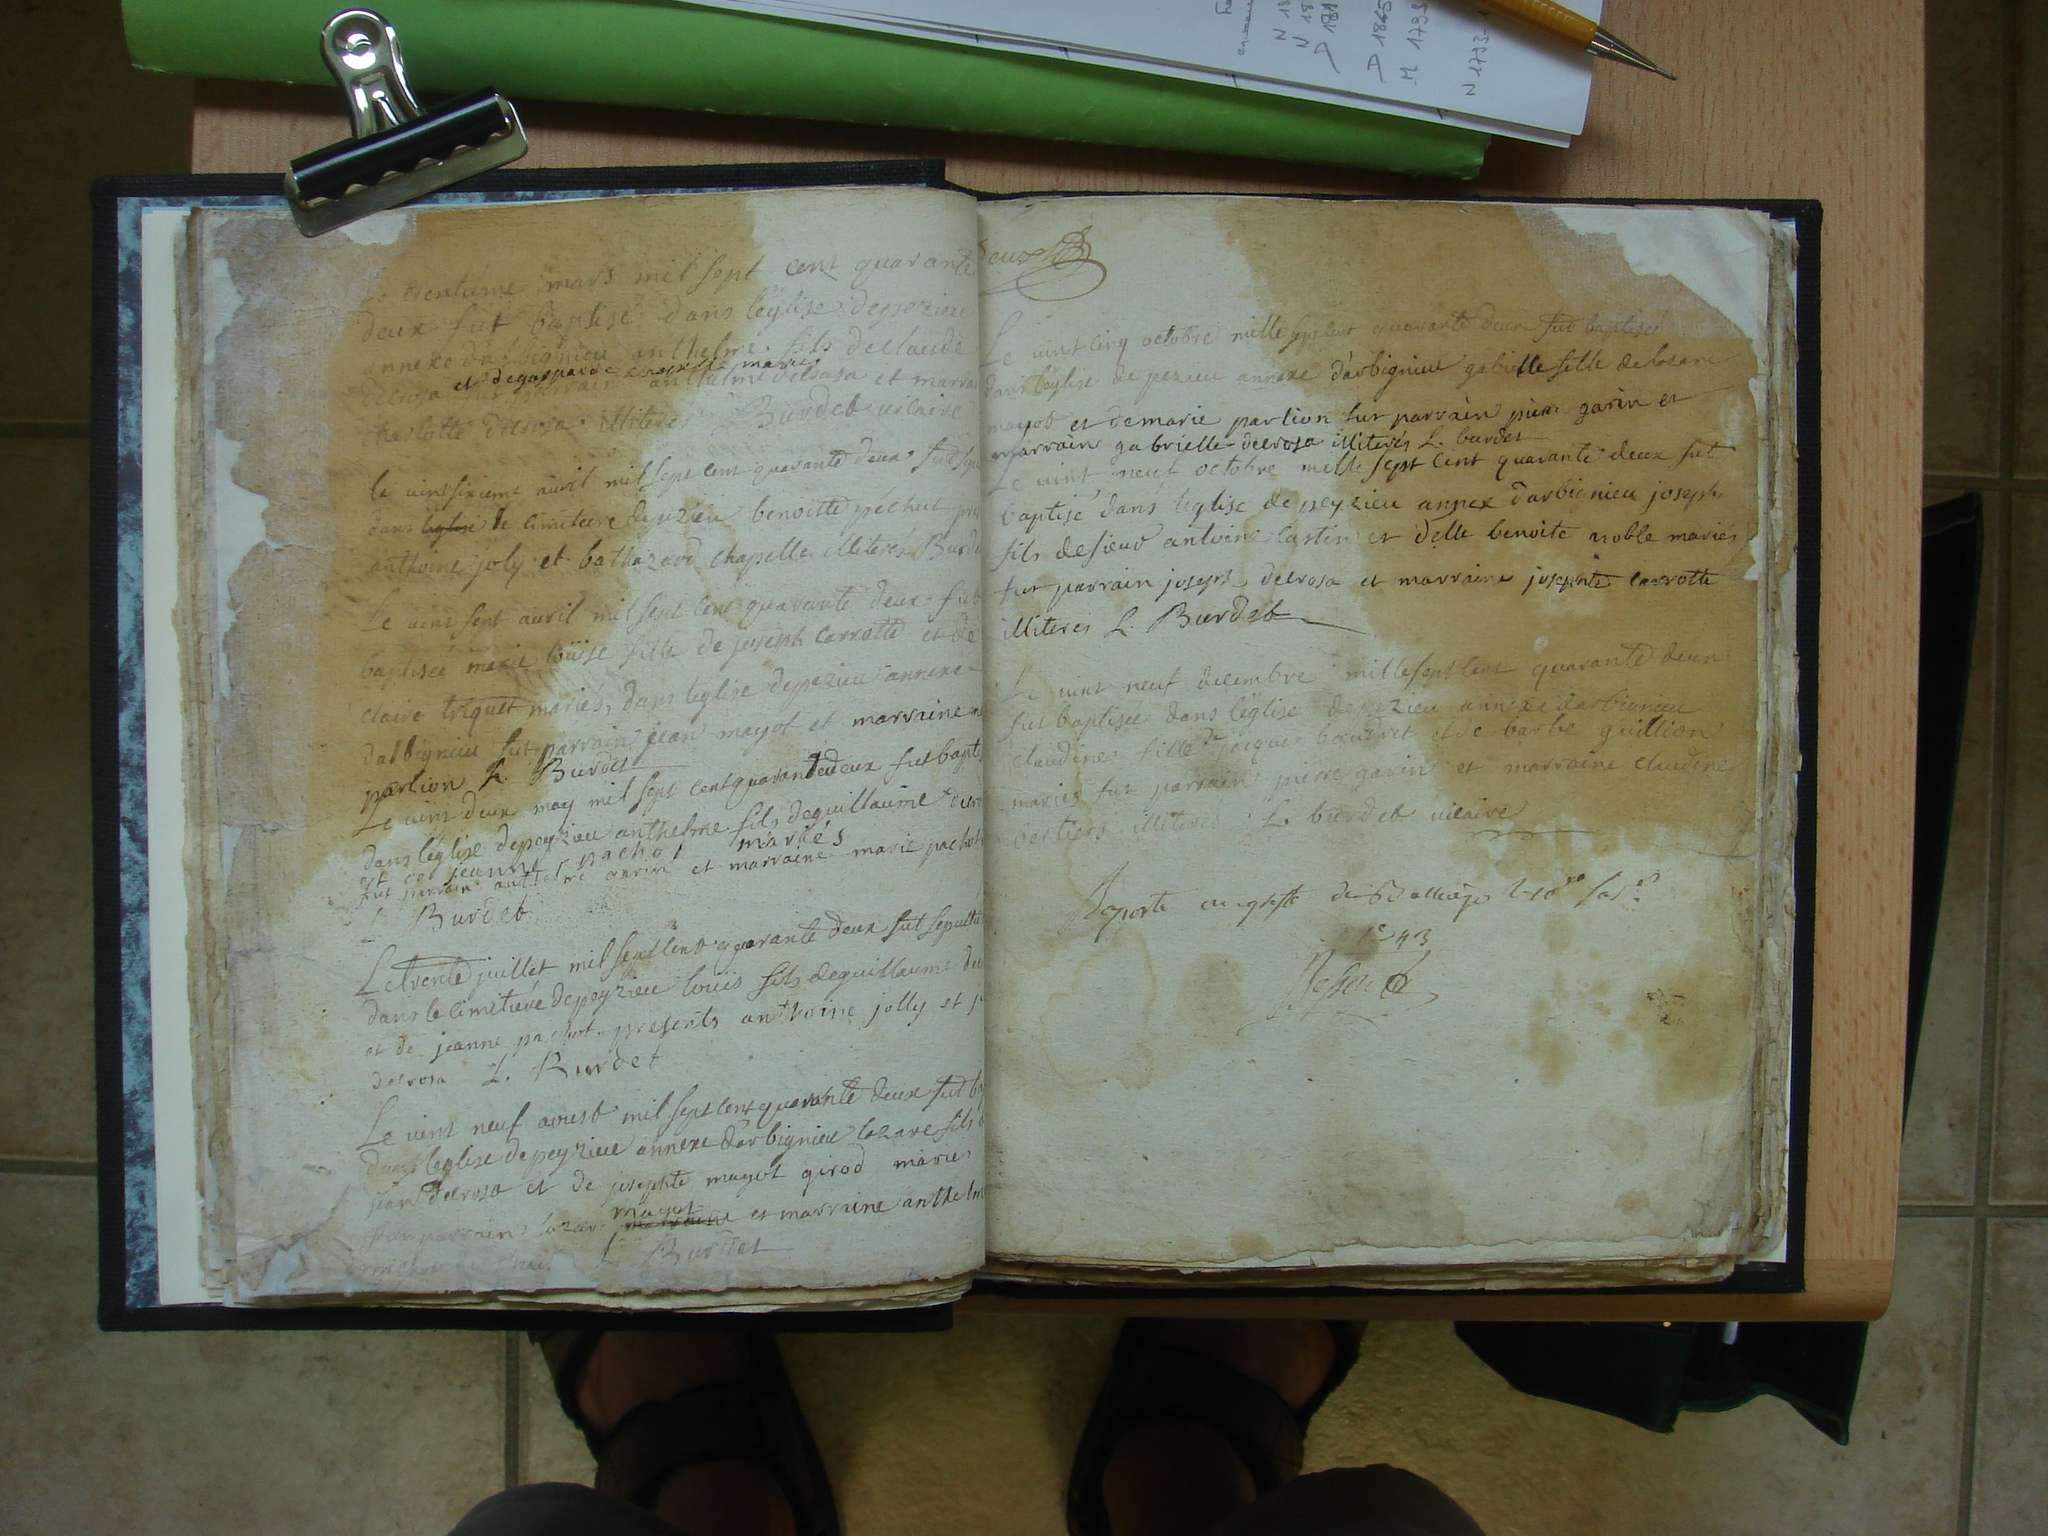 N 1773
M 1793
D 1865
trentieme mars mil sept cent quarante
deux fut baptisé dans l'église depezieu
annexe darbignieu anthelme fils declaude
et degasparde mariés
delrosa fut parrain anthelme delrosa et marraine
charlotte delrosa illiteres Burdet vicaire
le vint sixieme avril mil sept cent quarante deux fut
dans leglise le cimiteere depezieu benoitte pechut
anthoine joly et bathazard chapelle illiterés Burdet
Le vint sept avril mil sept cent quarante deux fut
baptisée marie louise fille de joseph carrotte et de
claire triquet mariés, dans leglise depezieu annexe
darbignieu fut parrain jean mayot et marraine
parlion L. Burdet
Le vint deux may mil sept cent quarantedeux fut bapti
dans léglise depeyzieu anthelme fils deguillaume
et de jeanne pachot mariés
fut parrain anthelme et marraine marie pachot
L. Burdet
Le trente juillet mil sept cent quarante deux fut sepultu
dans le cimetiere depeyzieu louis fils deguillaume
et de jeanne pachot presents anthoine jolly et
delrosa L. Burdet
Le vint neuf aoust mil sept cent quarante deux fut
dans leglise depeyzieu annexe d'arbignieu lazare fils
jean delrosa et de josephte mayot girod mariés
mayot
parrain lazare et marraine anthelm
L. Burdet
deux
Le vint cinq octobre mille sept cent quarante deux fut baptisée
dans leglise de pezieu annexe d'arbignieu gabielle fille delazare
mayot et demarie parlion fut parrain pierre garin et
marraine gabrielle delrosa illiterés L. burdet
Le vint neuf octobre mille sept cent quarante deux fut
baptisé dans leglise depeyzieu annex d'arbignieu joseph
fils desieur antoine et delle benoite noble mariés
fut parrain joseph delrosa et marraine josephte carrotte
illiteres L. Burdet
Le vint neuf decembre mille sept cent quarante deux
fut baptisée dans l'église depezieu annexe darbignieu
claudine fille de jacques boudret et de barbe guillion
mariés fut parrain pierre garin et marraine claudine
bertiers illiteres L. burdet vicaire
Raporté au greffe du
1743